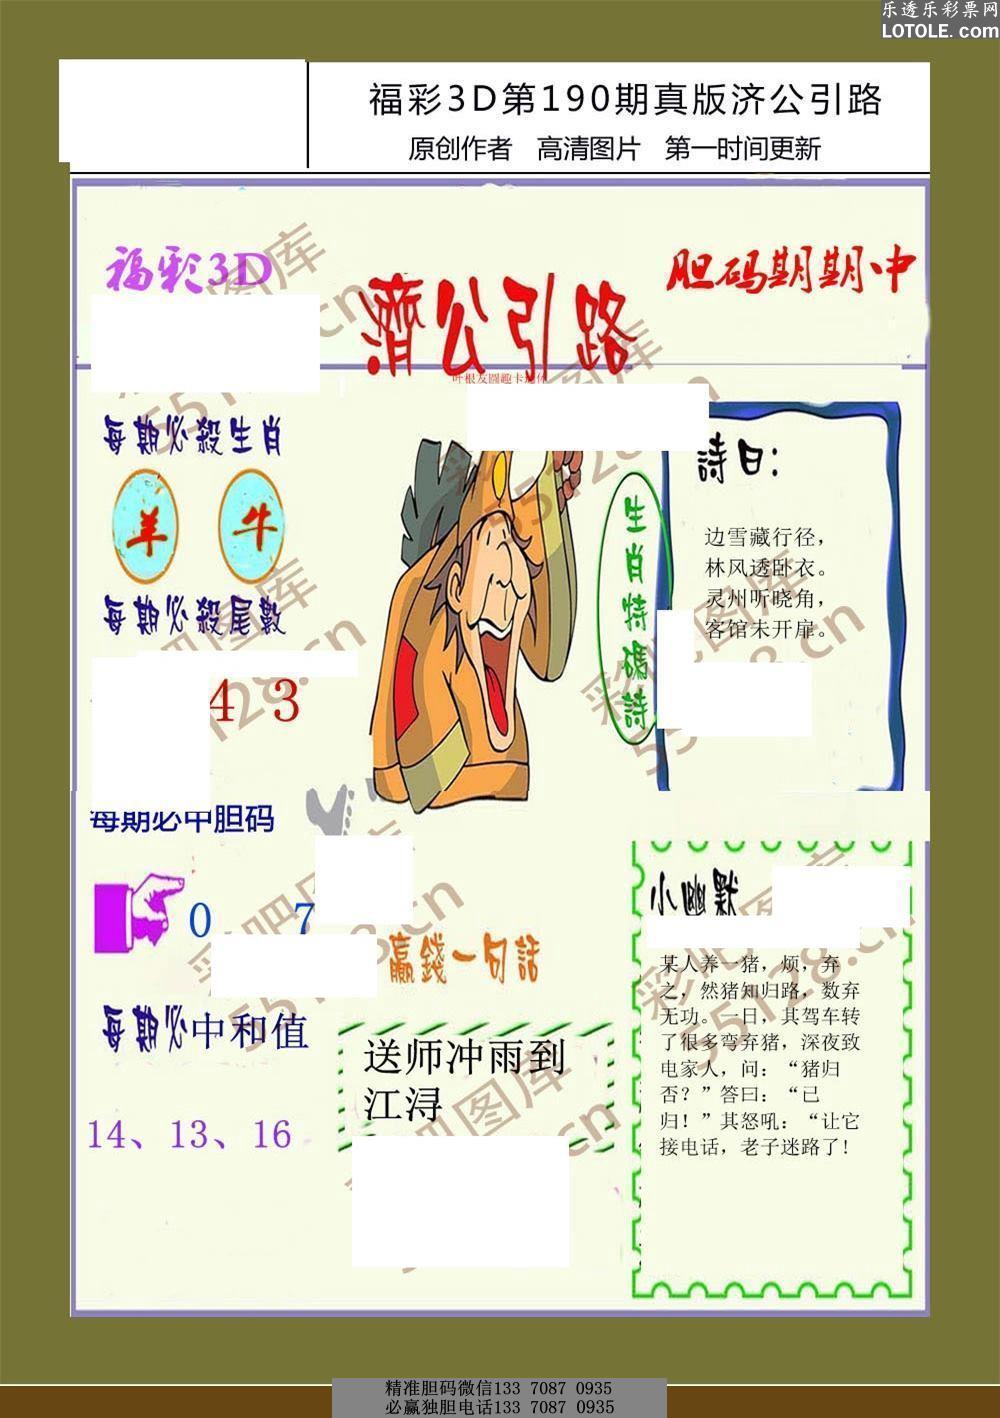 乐透乐彩票网
LOTOLE.com
福彩3D第190期真版济公引路
原创作者 高清图片 第一时间更新
福彩3D
濟公引路
胆码期期中
叶根友圆趣卡通体
每期必殺生肖
羊 牛
每期必殺尾數
4 3
每期必中胆码
0 7
每期必中和值
14、13、16
生肖特碼詩
詩曰:
边雪藏行径，
林风透卧衣。
灵州听晓角，
客馆未开扉。
赢錢一句話
送师冲雨到
江浔
小幽默
某人养一猪，烦，弃
之，然猪知归路，数弃
无功。一日，其驾车转
了很多弯弃猪，深夜致
电家人，问：“猪归
否？”答曰：“已
归！”其怒吼：“让它
接电话，老子迷路了!
彩吧图库
55128.cn
精准胆码微信133 7087 0935
必赢独胆电话133 7087 0935